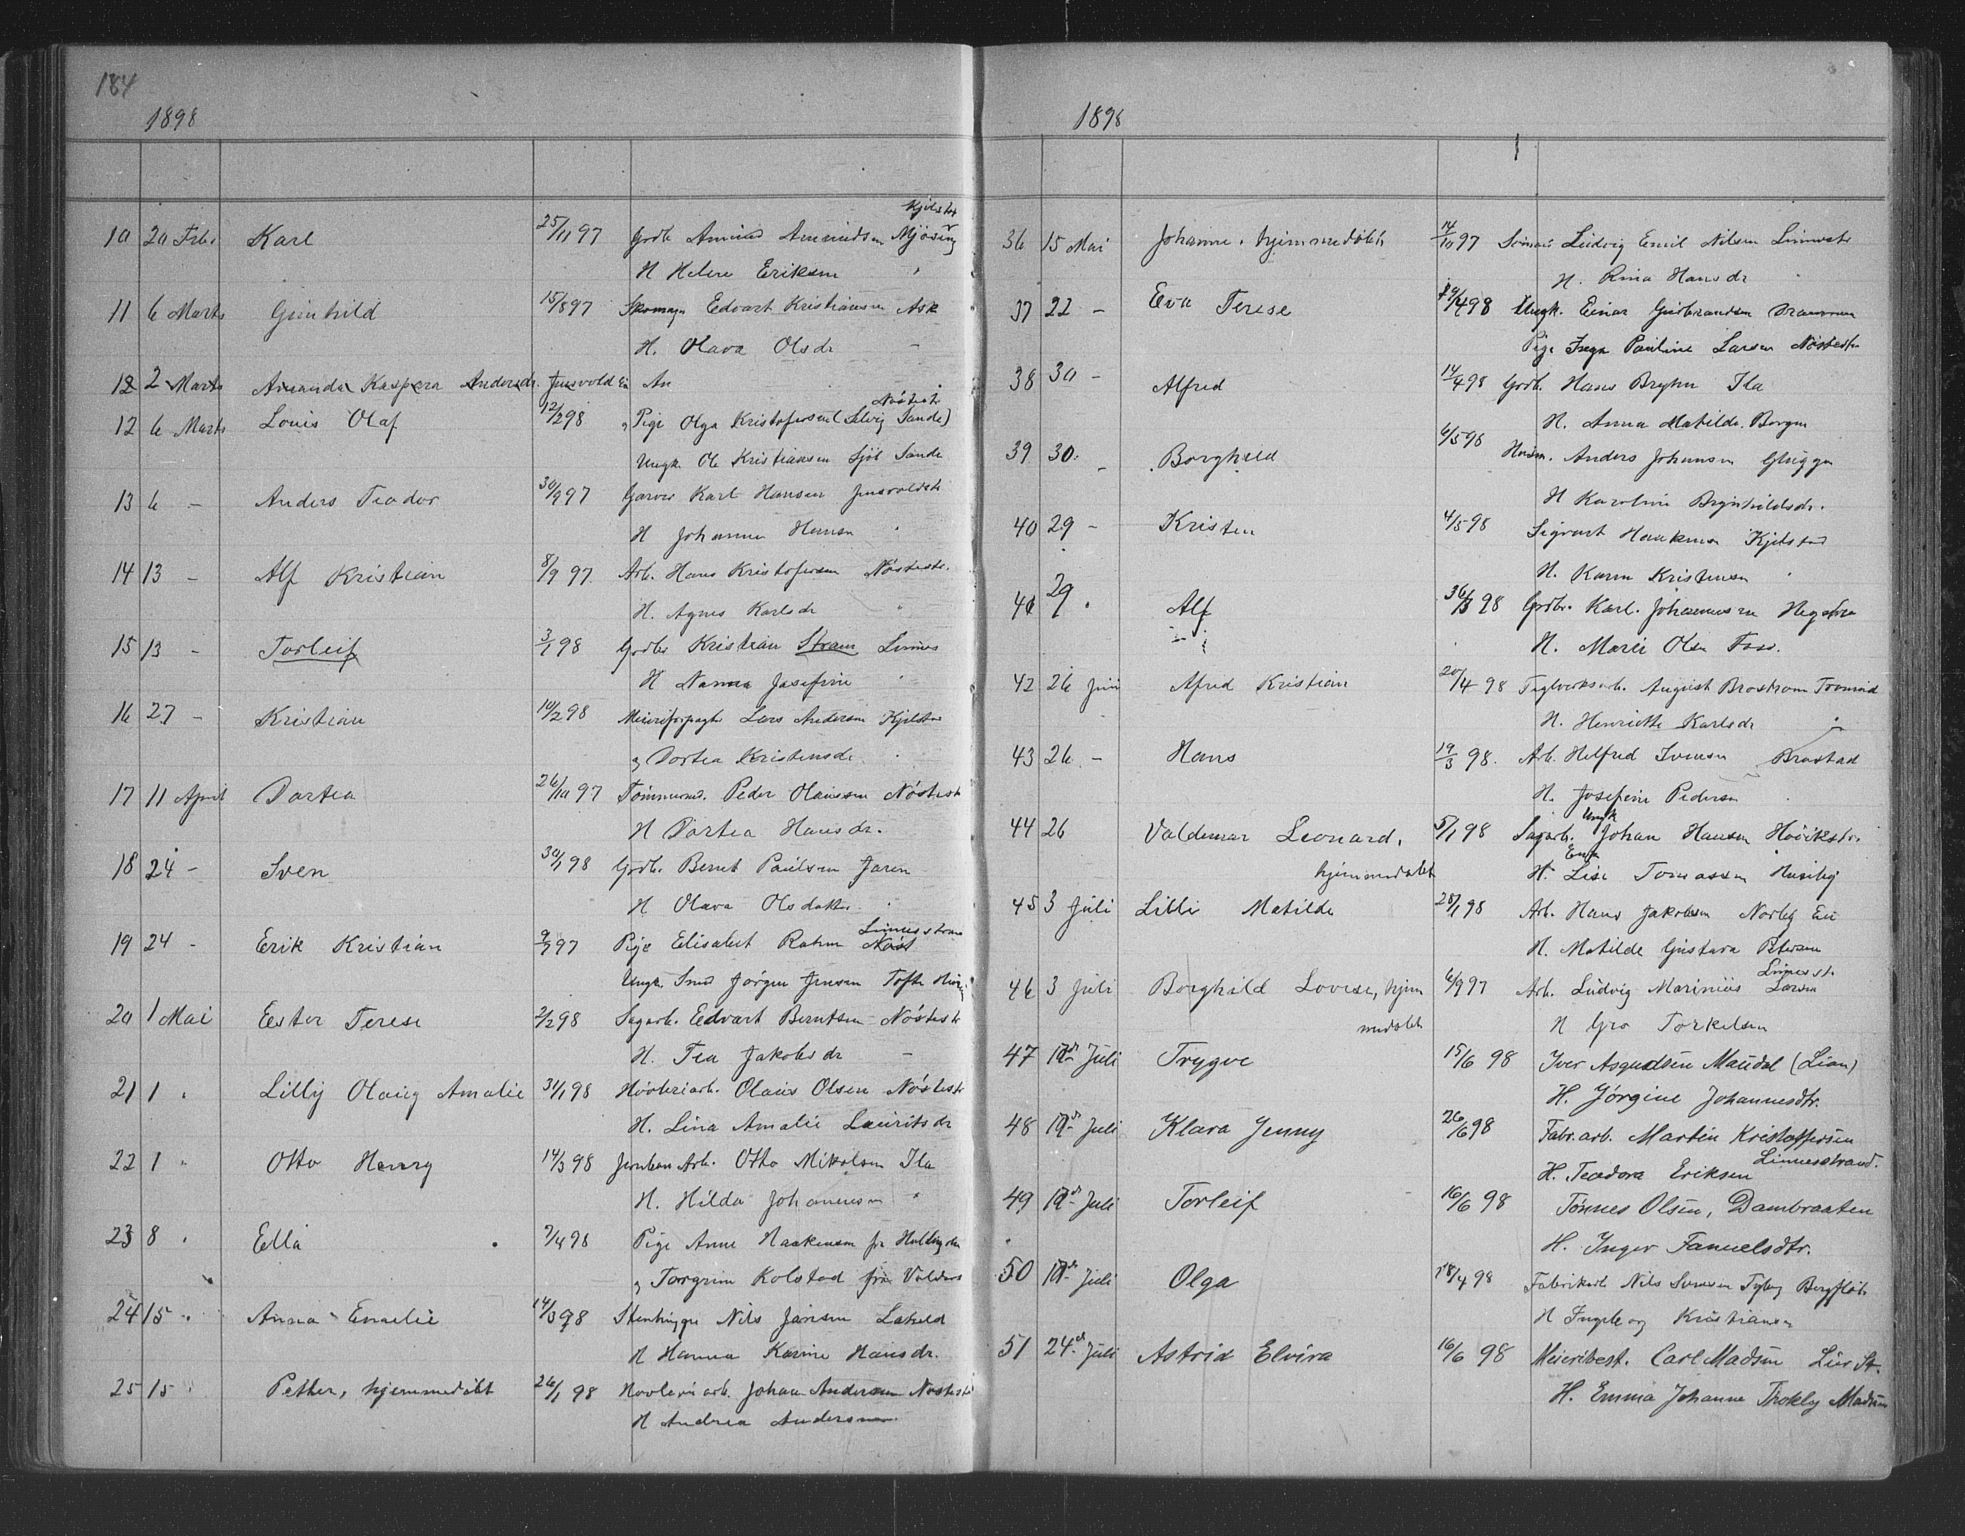 184
1898
10 20 Febr Karl 25/11 97 Grdb. Amund Amundsen Mjøsing
Kjelstad
H Helene Eriksen "
11 6 Marts Gunhild 15/8 97 Skomager Edvart Kristiansen Ask
H. Olava Olsdr —
12 2 Marts Amanda Kaspera Andersdr. An
12 6 Marts Louis Olaf 12/2 98 Pige Olga Kristofersen (Selvig Sande)
Ungk. Ole Kristiansen Sande
13 6 — Anders Teodor 30/9 97 Garver Karl Hansen
H Johanna Hansen "
14 13 — Alf Kristian 8/9 97. Arb. Hans Kristofersen Nøstestr.
H. Agnes Karlsdr "
15 13 — Torleif 3/1 98 Grdbr Kristian Strøm Linnes
H Nanna Josefine "
16 27 — Kristian 10/2 98 Meieriforpagter Lars Andersen Kjelstad
" Dortea Kristensdr. "
17 11 April Dortea 26/10 97 Tømmermd. Peder Olaussen Nøstestr
H Dortea Hansdr.
18 24 — Sven 30/1 98 Grdb. Bernt Paulsen Jaren
H Olava Olsdatter "
19 24 - Erik Kristian 9/7 97 Pige Elisabet Rahm Linnesstrand
Ungk. Smed Jørgen Jensen Tofte
20 1 Mai Ester Terese 2/2 98 Sagarb. Edvart Berntsen Nøstestr
H. Tea Jakobsdr —
21 1 " Lilly Olaug Amalie 31/1 98 Høvleriarb. Olaus Olsen Nøstestr
H. Lina Amalie Lauritsdr
22 1 " Otto Henry 14/3 98 Jernban Arb. Otto Mikalsen Ila
H. Hilda Johannesen "
23 8 " Ella 7/4 98 Pige Anne Haakensen fr
" Torgrim Kolstad fra Valdres
24 15 " Anna Emelie 14/3 98 Stenhugger Nils Jansen
H Hanna Karine Hansdr.
25 15 " Petter, hjemmedøbt 26/1 98 Høvleriarb. Johan Andersen Nøstestr
H Andrea Andersen
1898
36 15 Mai Johanne. hjemmedøbt 14/10 97 Ludvig Emil Nilsen Linnesstr
H. Rina Hansdr "
37 22 — Eva Terese 19/4 98 Ungk. Einar Gudbrandsen Drammen
Pige Inga Pauline Larsen Nøstestr
38 30 — Alfred 14/4 98 Grdb. Hans Bryhn Ila
H. Anna Matilde Borgen
39 30. — Borghild 6/5 98 Husm. Anders Johansen Gluggen
H Karoline Brynhildsdr.
40 29 — Kristen 4/5 98 Sigvart Haakensen Kjelstad
H. Karen Kristensen "
41 29 " Alf 30/3 98 Grdbr. Karl Johannesen
H. Marie Olsen Foss.
42 26 Juni Alfred Kristian 20/4 98 Teglverksarb. August Brostrøm Tronrud
H. Henriette Karlsdr "
43 26 — Hans 19/3 98. Arb. Helfred Svensen Brastad
H. Josefine Pedersen "
44 26 Valdemar Leonard, 5/1 98 Sagarb. Ungk Johan Hansen Høvikstr.
hjemmedøbt H. Enk Lise Tomassen Huseby
45 3 Juli Lilli Matilde 28/1 98 Arb. Hans Jakobsen Norby Eie
H. Matilde Gustava Petersen
46 3 Juli Borghild Lovise, hjem 6/9 97 Arb. Ludvig Marinius Larsen
Linnesstr.
medøbt H Gro Torkelsen
47 10de Juli Trygve 15/6 98 Iver Asmundsen Maudal (Lian)
H. Jørgine Johannesdtr.
48 10de Juli Klara Jenny 26/6 98 Fabr.arb. Martin Kristoffersen
Linnesstrand.
H. Teodora Eriksen
49 10de Juli Torleif 16/6 98 Tønnes Olsen, Dambraaten
H. Inger Samuelsdtr.
50 10de Juli Olga 18/4 98 Fabrikarb Nils Svensen
H Ingeborg Kristiansen
51 24de Juli Astrid Elvira 16/6 98 Meieribest. Carl Madsen Lier St.
H. Emma Johanne Madsen